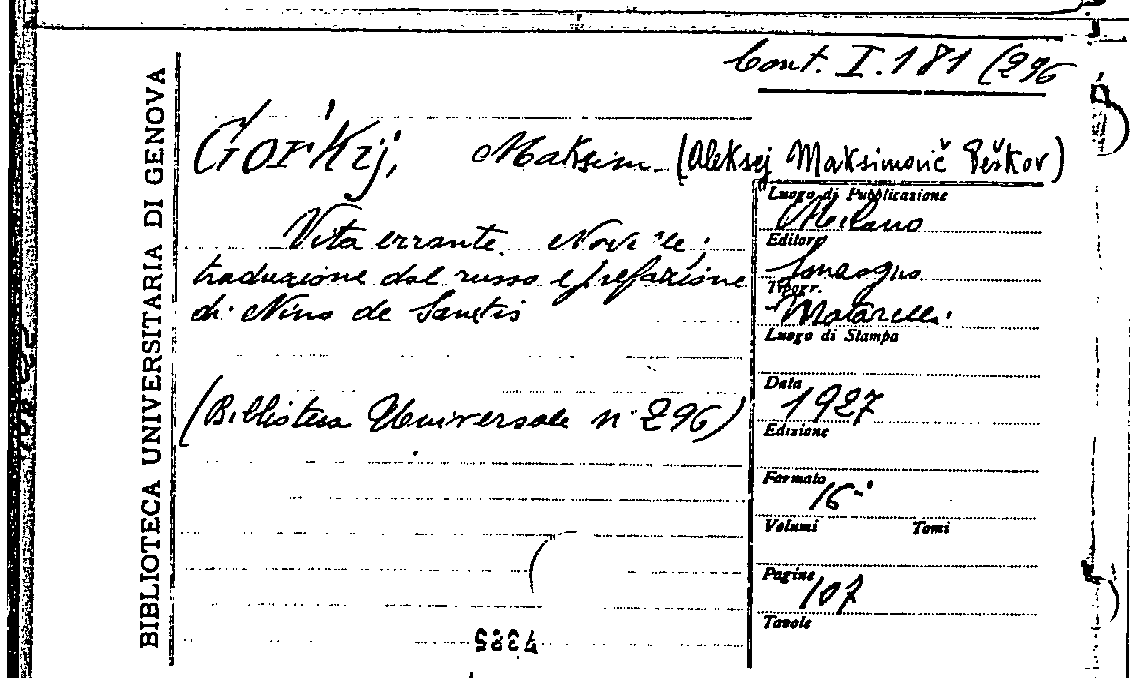 Cont. I. 181 (296
BIBLIOTECA UNIVERSITARIA DI GENOVA
Gor'kij, Maksim (Aleksej Maksimovič Peškov)
Vita errante. Novelle;
traduzione dal russo e prefazione
di Nino de Sanctis
(Biblioteca Universale n. 296)
Luogo di Pubblicazione
Milano
Editore
Sonzogno
Tipogr.
Matarelli
Luogo di Stampa
Data
1927
Edizione
Formato
16°
Volumi Tomi
Pagine
107
Tavole